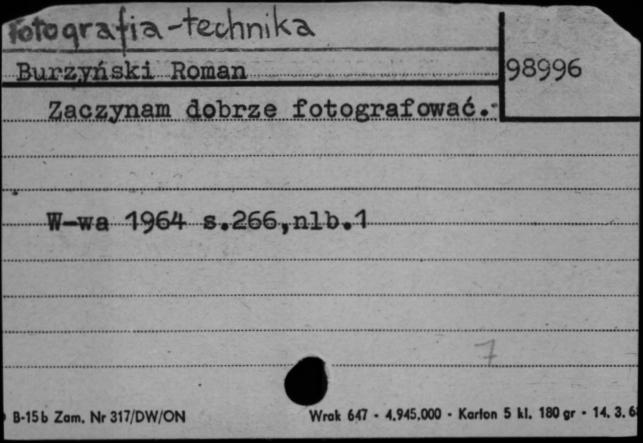 fotografia-technika
Burzyński Roman
98996
Zaczynam dobrze fotografować.-
W-wa 1964 s.266,nlb.1
7
B-15b Zam. Nr 317/DW/ON
Wrak 647 - 4.945.000 - Karton 5 kl. 180 gr - 14. 3. 6